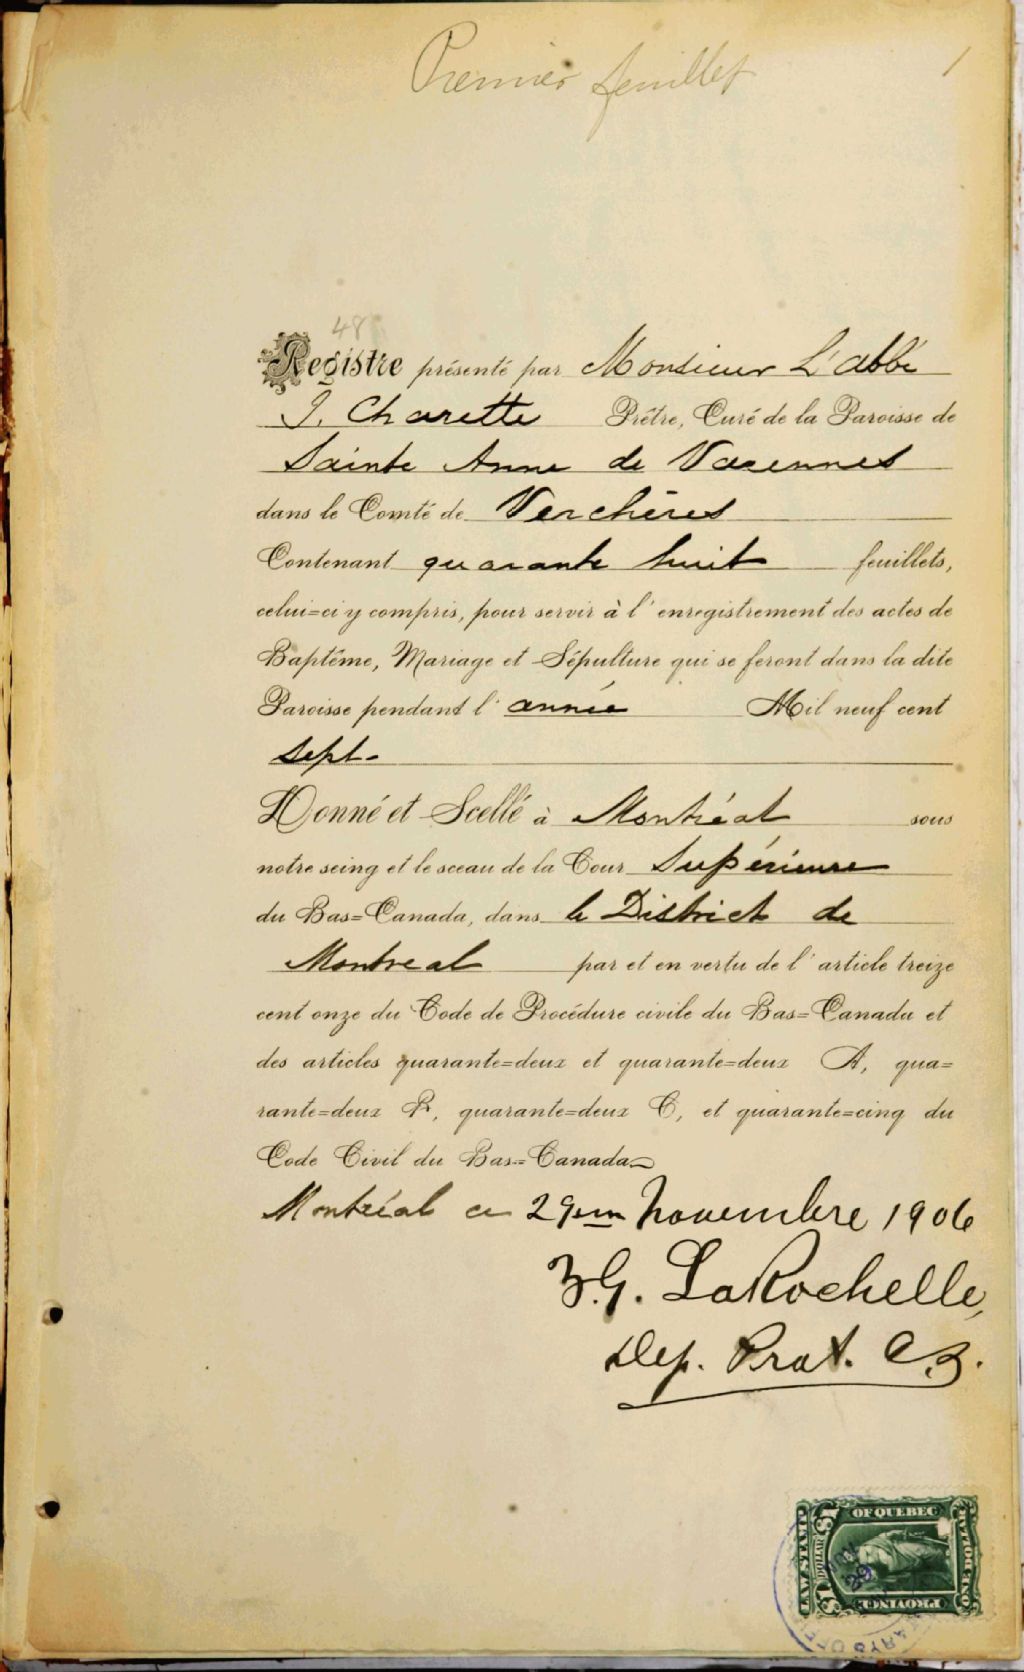 Premier feuillet
1
48
Registre présenté par Monsieur L'abbé
J. Charette Prêtre, Curé de la Paroisse de
Sainte Anne de Varennes
dans le Comté de Verchères
Contenant quarante huit feuillets,
celui=ci y compris, pour servir à l'enregistrement des actes de
Baptême, Mariage et Sépulture qui se feront dans la dite
Paroisse pendant l'année Mil neuf cent
sept-
Donné et Scellé à Montréal sous
notre seing et le sceau de la Cour Supérieure
du Bas=Canada, dans le District de
Montreal par et en vertu de l'article treize
cent onze du Code de Procédure civile du Bas=Canada et
des articles quarante=deux et quarante=deux A, qua=
rante=deux B, quarante=deux C, et quarante=cinq du
Code Civil du Bas=Canada
Montréal ce 29em Novembre 1906
LaRochelle,
Dep. Prot. C.S.
LAW STAMP
$1 DOLLAR
OF QUEBEC
ONE DOLLAR
PROVINCE
$1
NOV
29